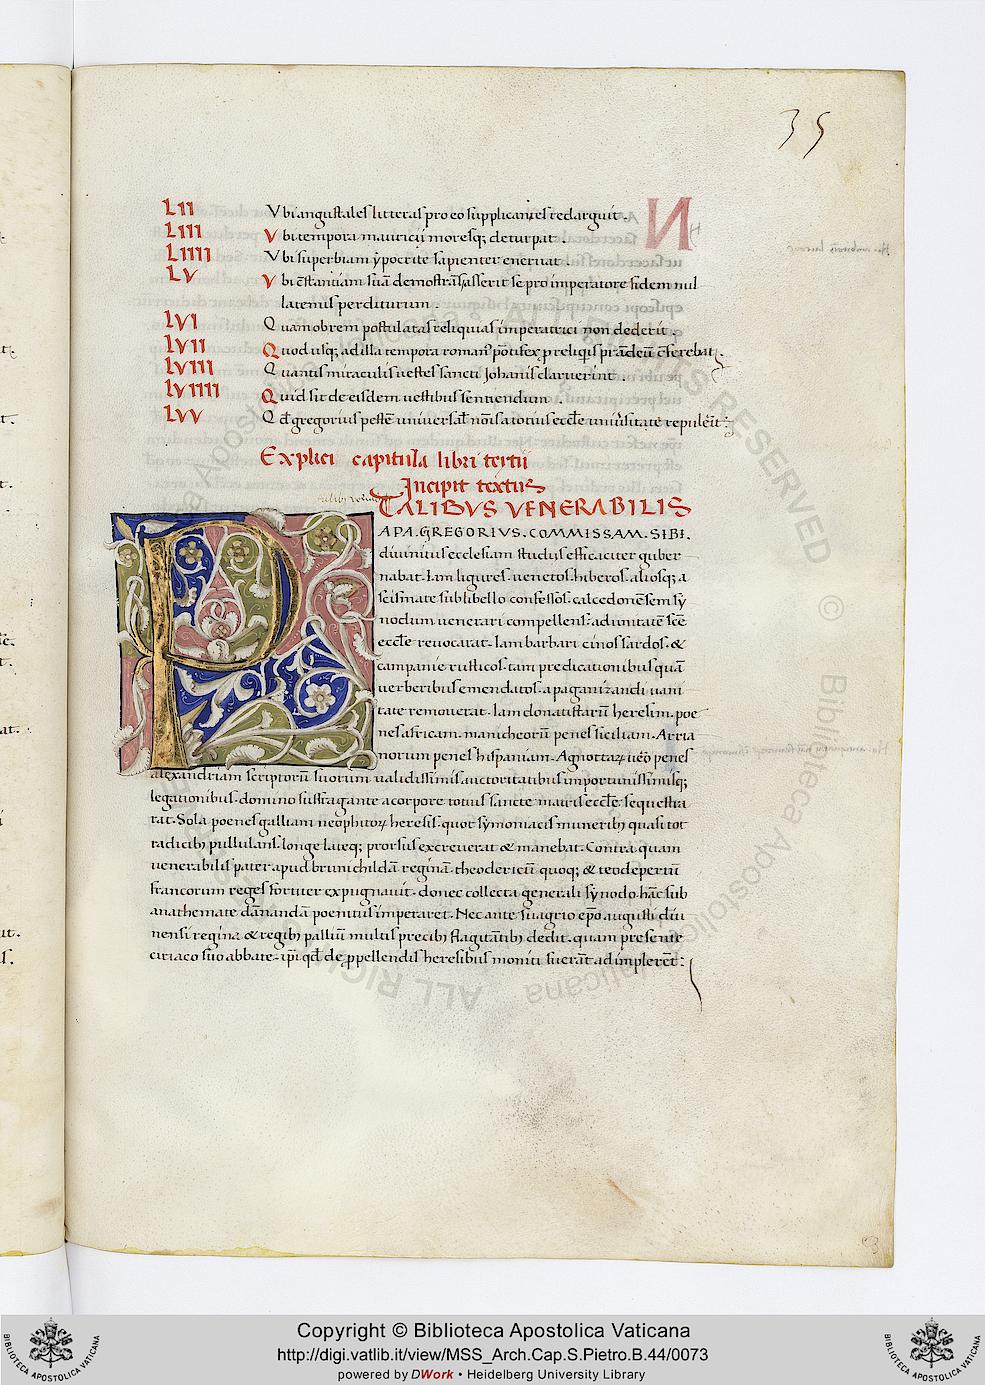 35
LII Vbi angustales litteras pro eo supplicantes redarguit.
LIII Vbi tempora mauricii moresq; deturpat.
LIIII Vbi superbiam ypocrite sapienter eneruat.
LV Vbi c̄stantiam suā demostrās asserit se pro imperatore fidem nul
latenus perditurum.
LVI Quamobrem postulatas reliquias imperatrici non dederit.
LVII Quod usq; ad illa tempora roman' pōtifex p̄ reliquis
LVIII Quantis miraculis uestes sancti Johanis claruerint.
LVIIII Quid sit de eisdem uestibus sentiendum.
LVV Qd̄ gregorius pestē uniuersal' nōīs a totius eccl̄e uniu'sitate repulerit:
Explici capitula libri tertii
Incipit textus
TALIBVS VENERABILIS
PAPA. GREGORIVS. COMMISSAM. SIBI.
diuinitus ecclesiam studiis efficaciter guber
nabat. Iam ligures. uenetos. hiberos. aliosq; a
scismate sub libello confessos. calcedonēsem sy
nodum uenerari compellens. ad unitatē scē
eccl̄e reuocarat. Iam barbaricinos sardos. &
campanie rusticos. tam predicationibus quā
uerberibus emendatos. a paganizandi uani
tate remouerat. Iam donatistarū heresim. poe
nes africam. manicheorū penes siciliam. Arria
norum penes hispaniam. Agnoitaꝝ uēo penes
alexandriam scriptorū suorum ualidissimis auctoritatibus importunissimisq;
legationibus. domino suffragante a corpore totius sancte matris eccl̄e sequestra
rat. Sola poenes galliam neophitoꝝ heresis. quot symoniacis munerib; quasi tot
radicib; pullulans. longe lateq; prorsus excreuerat & manebat. Contra quam
uenerabilis pater apud brunichildā reginā. theodericū quoq; & teodepertū
francorum reges fortiter expugnauit. donec collecta generali synodo. hāc sub
anathemate dānandā poenitus imperaret. Nec ante suagrio ep̄o augusti diu
nensi regina & regib; palliū multis precib; flagitātib; dedit. quam presente
ciriaco suo abbate. ip̄i qd̄ de p̄pellendis heresibus moniti fuerāt adimplerēt:
Copyright © Biblioteca Apostolica Vaticana
http://digi.vatlib.it/view/MSS_Arch.Cap.S.Pietro.B.44/0073
powered by DWork • Heidelberg University Library